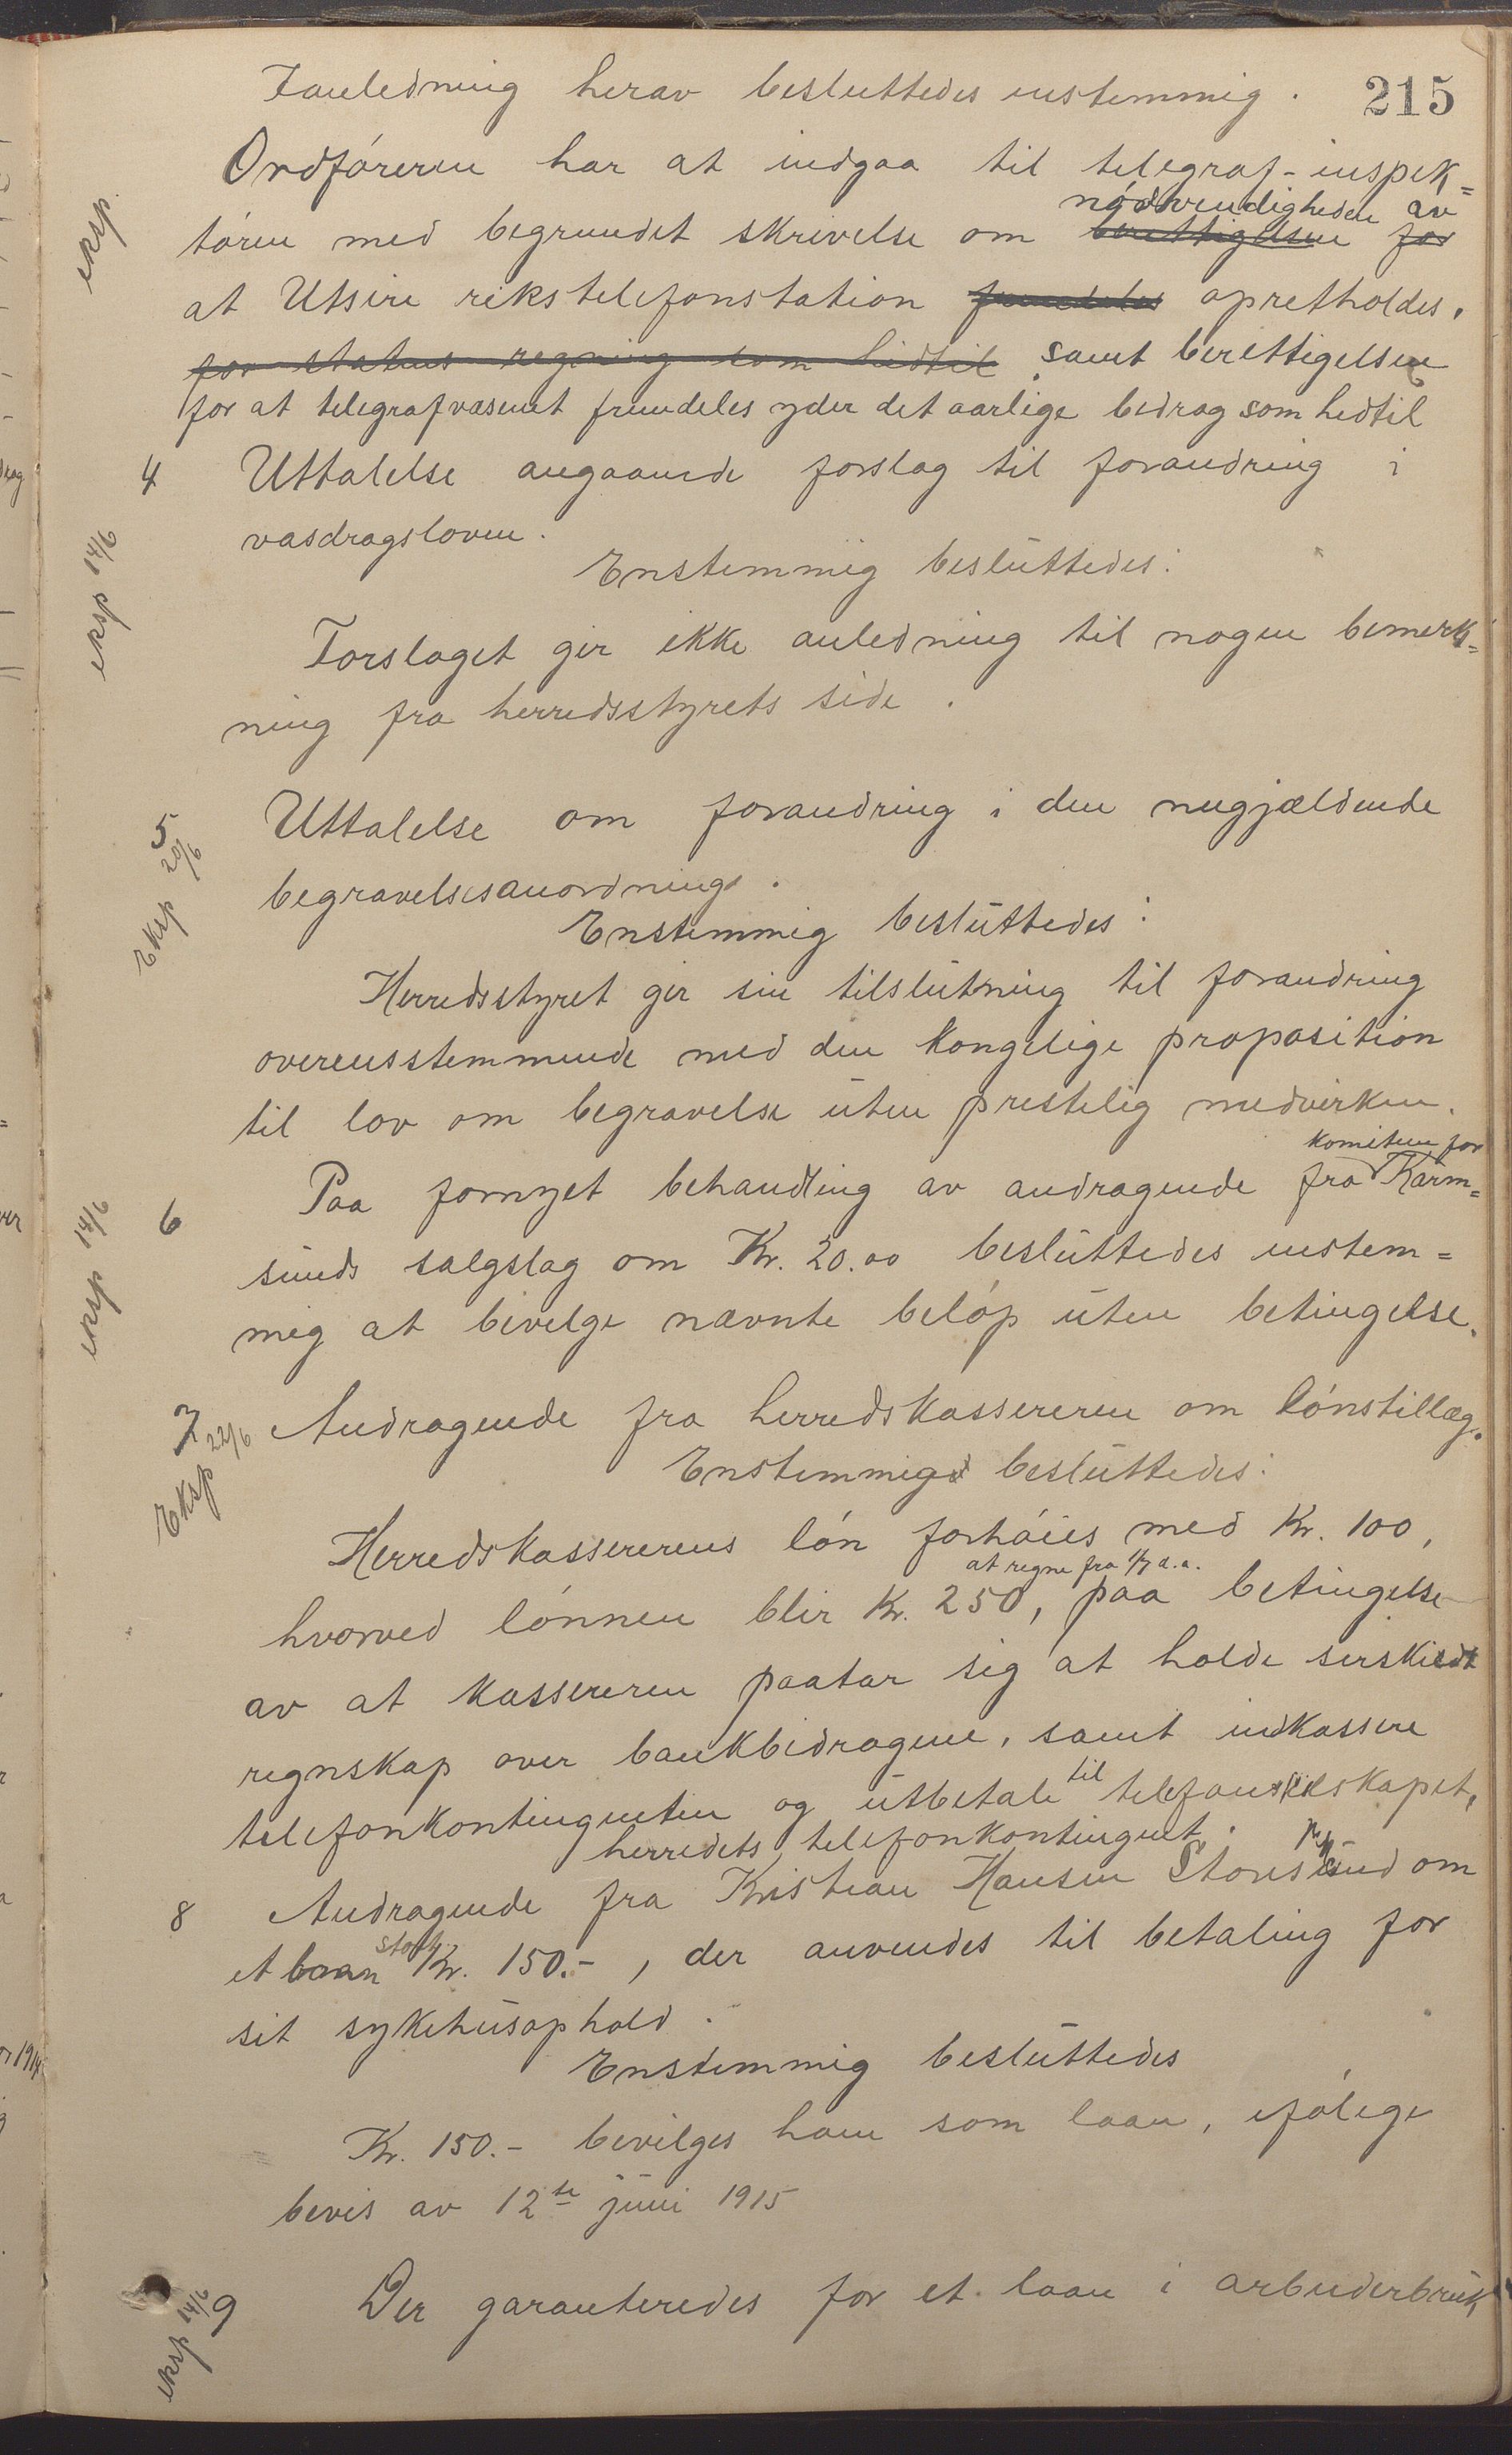 215
Ianledning herav besluttedes enstemmig.
Ordføreren har at indgaa til telegraf-inspek=
nødvendigheden av
tøren med begrundet skrivelse om berettigelsen for
at Utsire rikstelefonstation fremdeles opretholdes,
for statens regning som hidtil samt berettigelsen
for at telegrafvæsenet fremdeles yder det aarlige bidrag som hidtil
eksp.
4 Uttalelse angaaende forslag til forandring i
vasdragsloven.
eksp 14/6
Enstemmig besluttedes:
Forslaget gir ikke anledning til nogen bemerk=
ning fra herredsstyrets side.
5 Uttalelse om forandring i den nugjældende
begravelsesanordning.
Eksp 20/6
Enstemmig besluttedes:
Herredsstyret gir sin tilslutning til forandring
overensstemmende med den kongelige proposition
til lov om begravelse uten prestelig medvirken.
komiteen for
6 Paa fornyet behandling av andragende fra Karm=
sunds salgslag om Kr. 20.00 besluttedes enstem=
mig at bevilge nævnte beløp uten betingelse.
eksp 14/6
7 Andragende fra herredskassereren om lønstillæg.
Eksp 22/6
Enstemmig besluttedes:
Herredskassererens løn forhøies med Kr. 100,
at regne fra 1/7 d.a.
hvorved lønnen blir Kr. 250, paa betingelse
av at kassereren paatar sig at holde serskildt
regnskap over bankbidragene, samt indkassere
telefonkontingenten og utbetale til telefonselskapet,
herredets telefonkontingent.
8 Andragende fra Kristian Hansen Storesund om
et laan stort Kr. 150.-, der anvendes til betaling for
sit sykehusophold.
Enstemmig besluttedes
Kr. 150.- bevilges ham som laan, ifølge
bevis av 12te juni 1915
9 Der garanteredes for et laan i arbeiderbruk
eksp 14/6